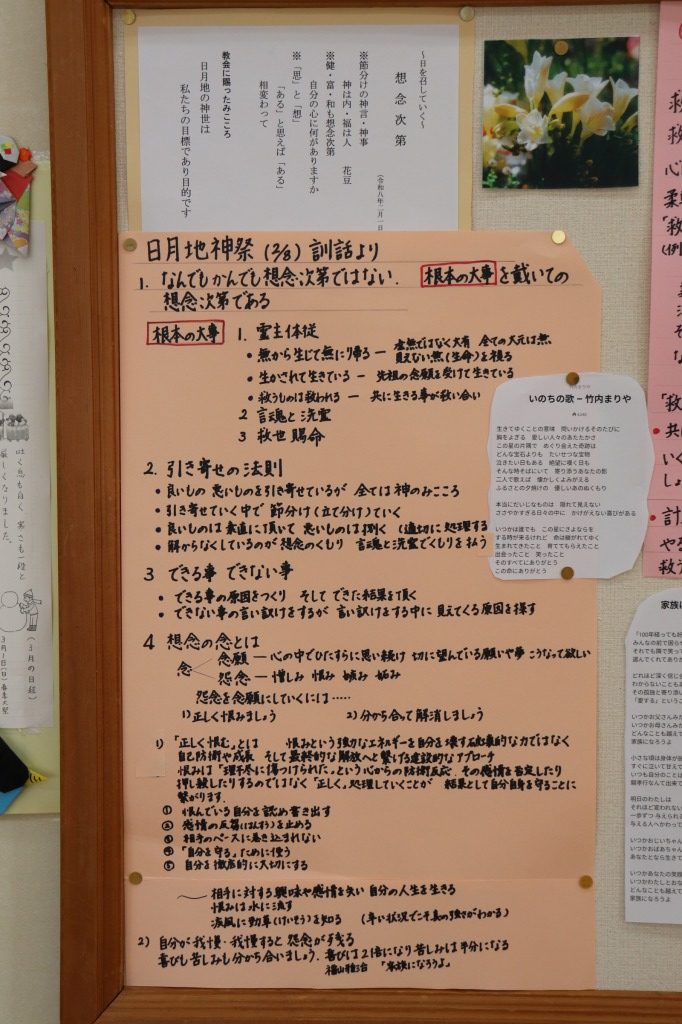 ～日を召していく～
想念次第
(令和八年二月一日
※節分けの神言・神事
神は内・福は人　花豆
※健・富・和も想念次第
自分の心に何がありますか
※「思」と「想」
「ある」と思えば「ある」
相変わって
教会に賜ったみこころ
日月地の神世は
私たちの目標であり目的です
日月地神祭 (2/8) 訓話より
1. なんでもかんでも想念次第ではない. 根本の大事を戴いての
想念次第である
根本の大事 1. 霊主体従
・無から生じて無にり帰る ー 虚無ではなく大有 全ての大元は無.
見えない無(生命)を視る
・生かされて生きている ー 先祖の念願を受けて生きている
・救うものは救われる ー 共に生きる事が救い合い
2 言魂と洗霊
3 救世賜命
2. 引き寄せの法則
・良いもの 悪いものを引き寄せているが 全ては神のみこころ
・引き寄せていく中で 節分け(立て分け)ていく
・良いものは素直に頂いて 悪いものは捌く (適切に処理する
・解からなくしているのが想念のくもり 言魂と洗霊でくもりを払う
3 できる事 できない事
・できる事の原因をつくり そして できた結果を頂く
・できない事の言い訳けをするが 言い訳けをする中に見えてくる原因を探す
4 想念の念とは
念 念願 ー 心の中でひたすらに思い続け 切に望んでいる願いや夢 こうなって欲しい
怨念 ー 憎しみ 恨み 嫉み 妬み
怨念を念願にしていくには……
1) 正しく恨みましょう 2) 分から合って解消しましょう
1) 「正しく恨む」とは 恨みという強力なエネルギーを自分を壊す破壊的な力ではなく
自己防衛や成長 そして最終的な解放へと繋げる建設的なアプローチ
恨みは「理不尽に傷つけられた」という心からの防衛反応. その感情を否定したり
押し殺したりするのではなく「正しく」処理していくことが 結果として自分自身を守ることに
繋がります.
① 恨んでいる自分を認め書き出す
② 感情の反芻(はんすう)を止める
③ 相手のペースに巻き込まれない
④ 「自分を守る」ために使う
⑤ 自分を徹底的に大切にする
相手に対する興味や感情を失い 自分の人生を生きる
恨みは水に流す
疾風に勁草(けいそう)を知る (辛い状況でこそ真の強さがわかる)
2) 自分が我慢・我慢すると 怨念が残る
喜びも苦しみも分から合いましょう. 喜びは2倍になり苦しみは半分になる
福山雅治 「家族になろうよ」
いのちの歌 – 竹内まりや
生きてゆくことの意味　問いかけるそのたびに
胸をよぎる　愛しい人々のあたたかさ
この星の片隅で　めぐり会えた奇跡は
どんな宝石よりも　たいせつな宝物
泣きたい日もある　絶望に嘆く日も
そんな時そばにいて　寄り添うあなたの影
二人で歌えば　懐かしくよみがえる
ふるさとの夕焼けの　優しいあのぬくもり
本当にだいじなものは　隠れて見えない
ささやかすぎる日々の中に　かけがえない喜びがある
いつかは誰でも　この星にさよならを
する時が来るけれど　命は継がれてゆく
生まれてきたこと　育ててもらえたこと
出会ったこと　笑ったこと
そのすべてにありがとう
この命にありがとう
家族に
「100年経っても好
みんなの前で困らせ
それでも隣で笑って
選んでくれてあり
どれほど深く信じ
わからないことも
その孤独と寄り添い
「愛する」というこ
いつかお父さんみた
いつかお母さんみた
どんなことも越えて
家族になろうよ
小さな頃は身体が弱
すぐに泣いて甘えて
いつも自分のことは
親孝行なんて出来て
明日のわたしは
それほど変われない
一歩ずつ 与えられる
与える人へかわって
いつかおじいちゃん
いつかおばあちゃん
あなたとなら生きて
いつかあなたの笑顔
いつかわたしとおな
どんなことも越えて
家族になろうよ
吐く息も白く 寒さも一段と
厳しくなりました。
(3月の日程)
3月1日(日)春季大祭